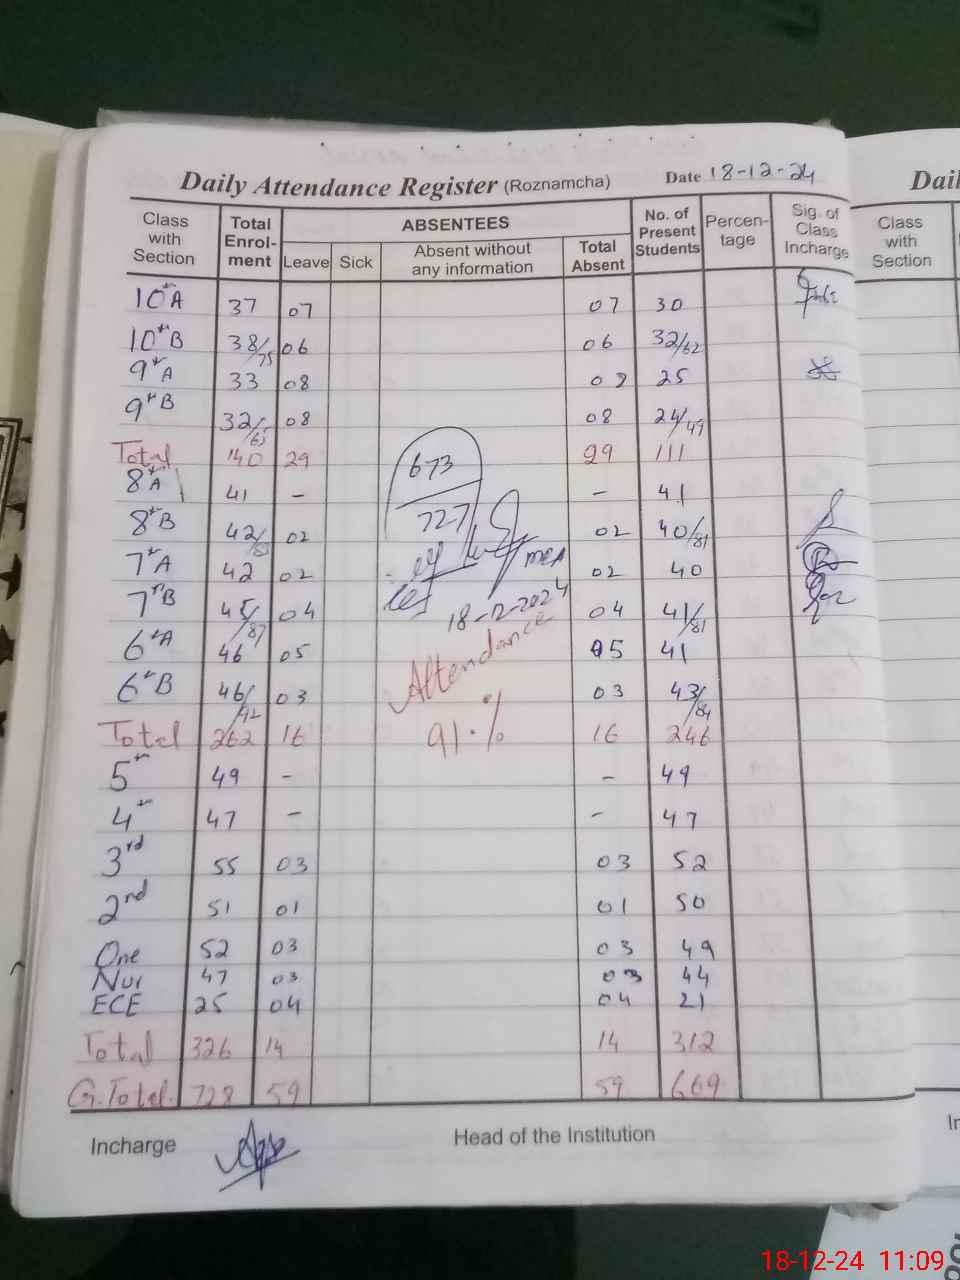 Daily Attendance Register (Roznamcha) Date 18-12-24
Class with Section Total Enrol-ment ABSENTEES Leave Sick Absent without any information Total Absent No. of Present Students Percen-tage Sig. of Class Incharge
10th A 37 07 07 30
10th B 38/75 06 06 32/62
9th A 33 08 08 25
9th B 32/65 08 08 24/49
Total 140 29 29 111
8th A 41 - - 41
8th B 42/83 02 02 40/81
7th A 42 02 02 40
7th B 45/87 04 04 41/81
6th A 46 05 05 41
6th B 46/92 03 03 43/84
Total 262 16 16 246
5th 49 - - 49
4th 47 - - 47
3rd 55 03 03 52
2nd 51 01 01 50
One 52 03 03 49
Nur 47 03 03 44
ECE 25 04 04 21
Total 326 14 14 312
G.Total 728 59 59 669
673
727
MEA
18-12-2024
Attendance
91%
Incharge Head of the Institution
Dail
Class with Section
In
18-12-24 11:09